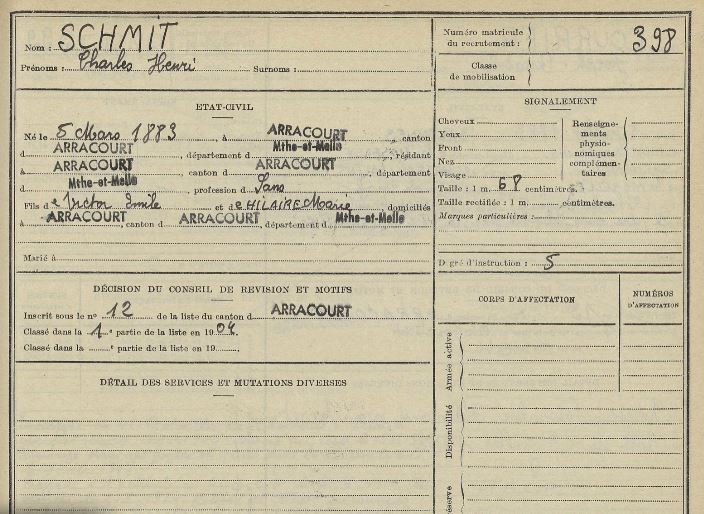 Nom : SCHMIT
Prénoms : Charles Henri Surnoms :
ETAT-CIVIL
Né le 5 Mars 1883, à ARRACOURT, canton
d ARRACOURT, département d Mthe-et-Melle, résidant
à ARRACOURT, canton d ARRACOURT, département
d Mthe-et-Melle, profession d Sans
Fils de Victor Emile et de HILAIRE Marie, domiciliés
à ARRACOURT, canton d ARRACOURT, département d Mthe-et-Melle
Marié à
DÉCISION DU CONSEIL DE REVISION ET MOTIFS
Inscrit sous le nº 12 de la liste du canton d ARRACOURT
Classé dans la 1e partie de la liste en 1904.
Classé dans la e partie de la liste en 19
DÉTAIL DES SERVICES ET MUTATIONS DIVERSES
Numéro matricule
du recrutement : 398
Classe
de mobilisation
SIGNALEMENT
Cheveux
Yeux
Front
Nez
Visage
Renseigne-
ments
physio-
nomiques
complémen-
taires
Taille : 1 m. 68 centimètres.
Taille rectifiée : 1 m. centimètres.
Marques particulières :
D gré d'instruction : 5
CORPS D'AFFECTATION
NUMÉROS
D'AFFECTATION
Armée active
Disponibilité
éserve